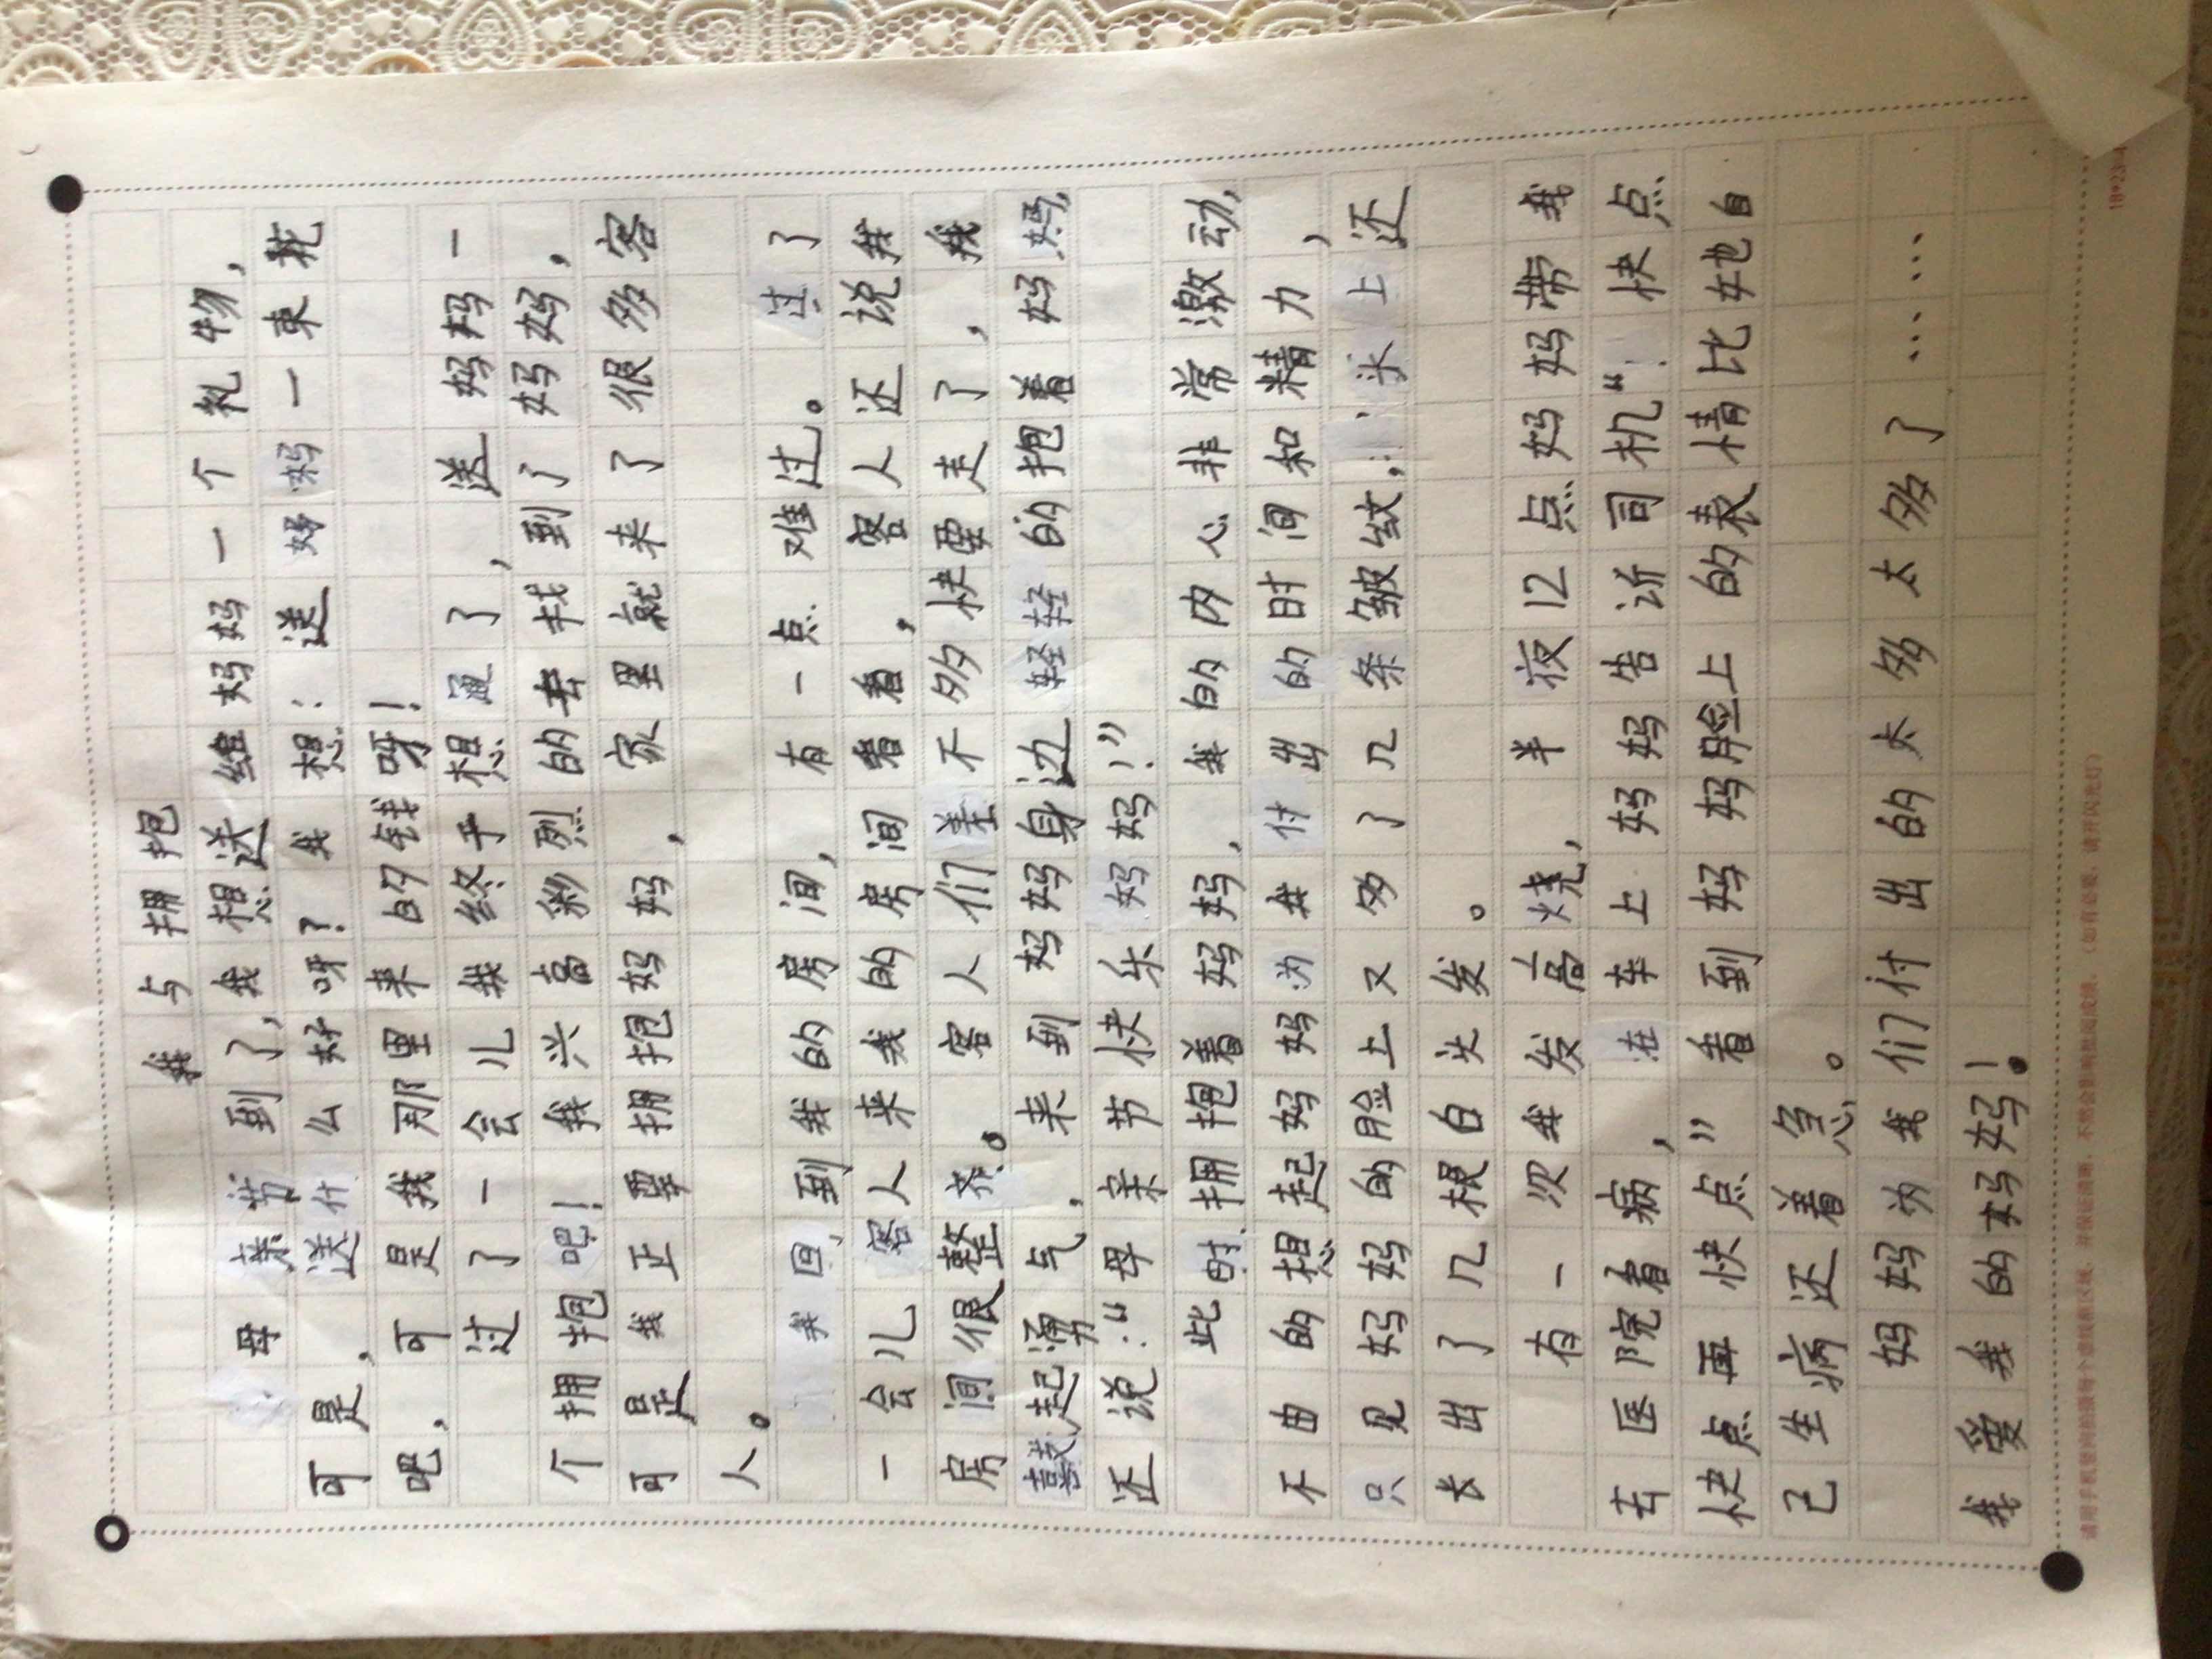 我与拥抱
母亲节到了,我想送给妈妈一个礼物,
可是,送什么好呀?我想:送妈妈一束花
吧,可是我那里来的钱呀!
过了一会儿我终于想通了,送妈妈一
个拥抱吧!我兴高彩烈的去找到了妈妈,
可是我正要拥抱妈妈,家里就来了很多客
人。
我回到我的房间,有一点难过。过了
一会儿客人来我的房间看看,客人还说我
房间很整齐。客人们差不多快要走了,我
鼓起湧气,来到妈妈身边轻轻的抱着妈妈,
还说:“亲母节快乐妈妈!”
此时,拥抱着妈妈,我的内心非常激动,
不由的想起妈妈为我付出的时间和精力,
只见妈妈的脸上又多了几条皱纹,头上还
长出了几根白头发。
有一次我发高烧,半夜12点妈妈带我
去医院看病,在车上妈妈告诉司机“:快点
快点再快点”看到妈妈脸上的表情比她自
己生病还着急。
妈妈为我们付出的太多太多了……
我爱我的妈妈!。
请用手机竖向拍摄每个虚线框区域,并保证清晰,不然会影响批阅成绩。(如有必要,请开闪光灯)